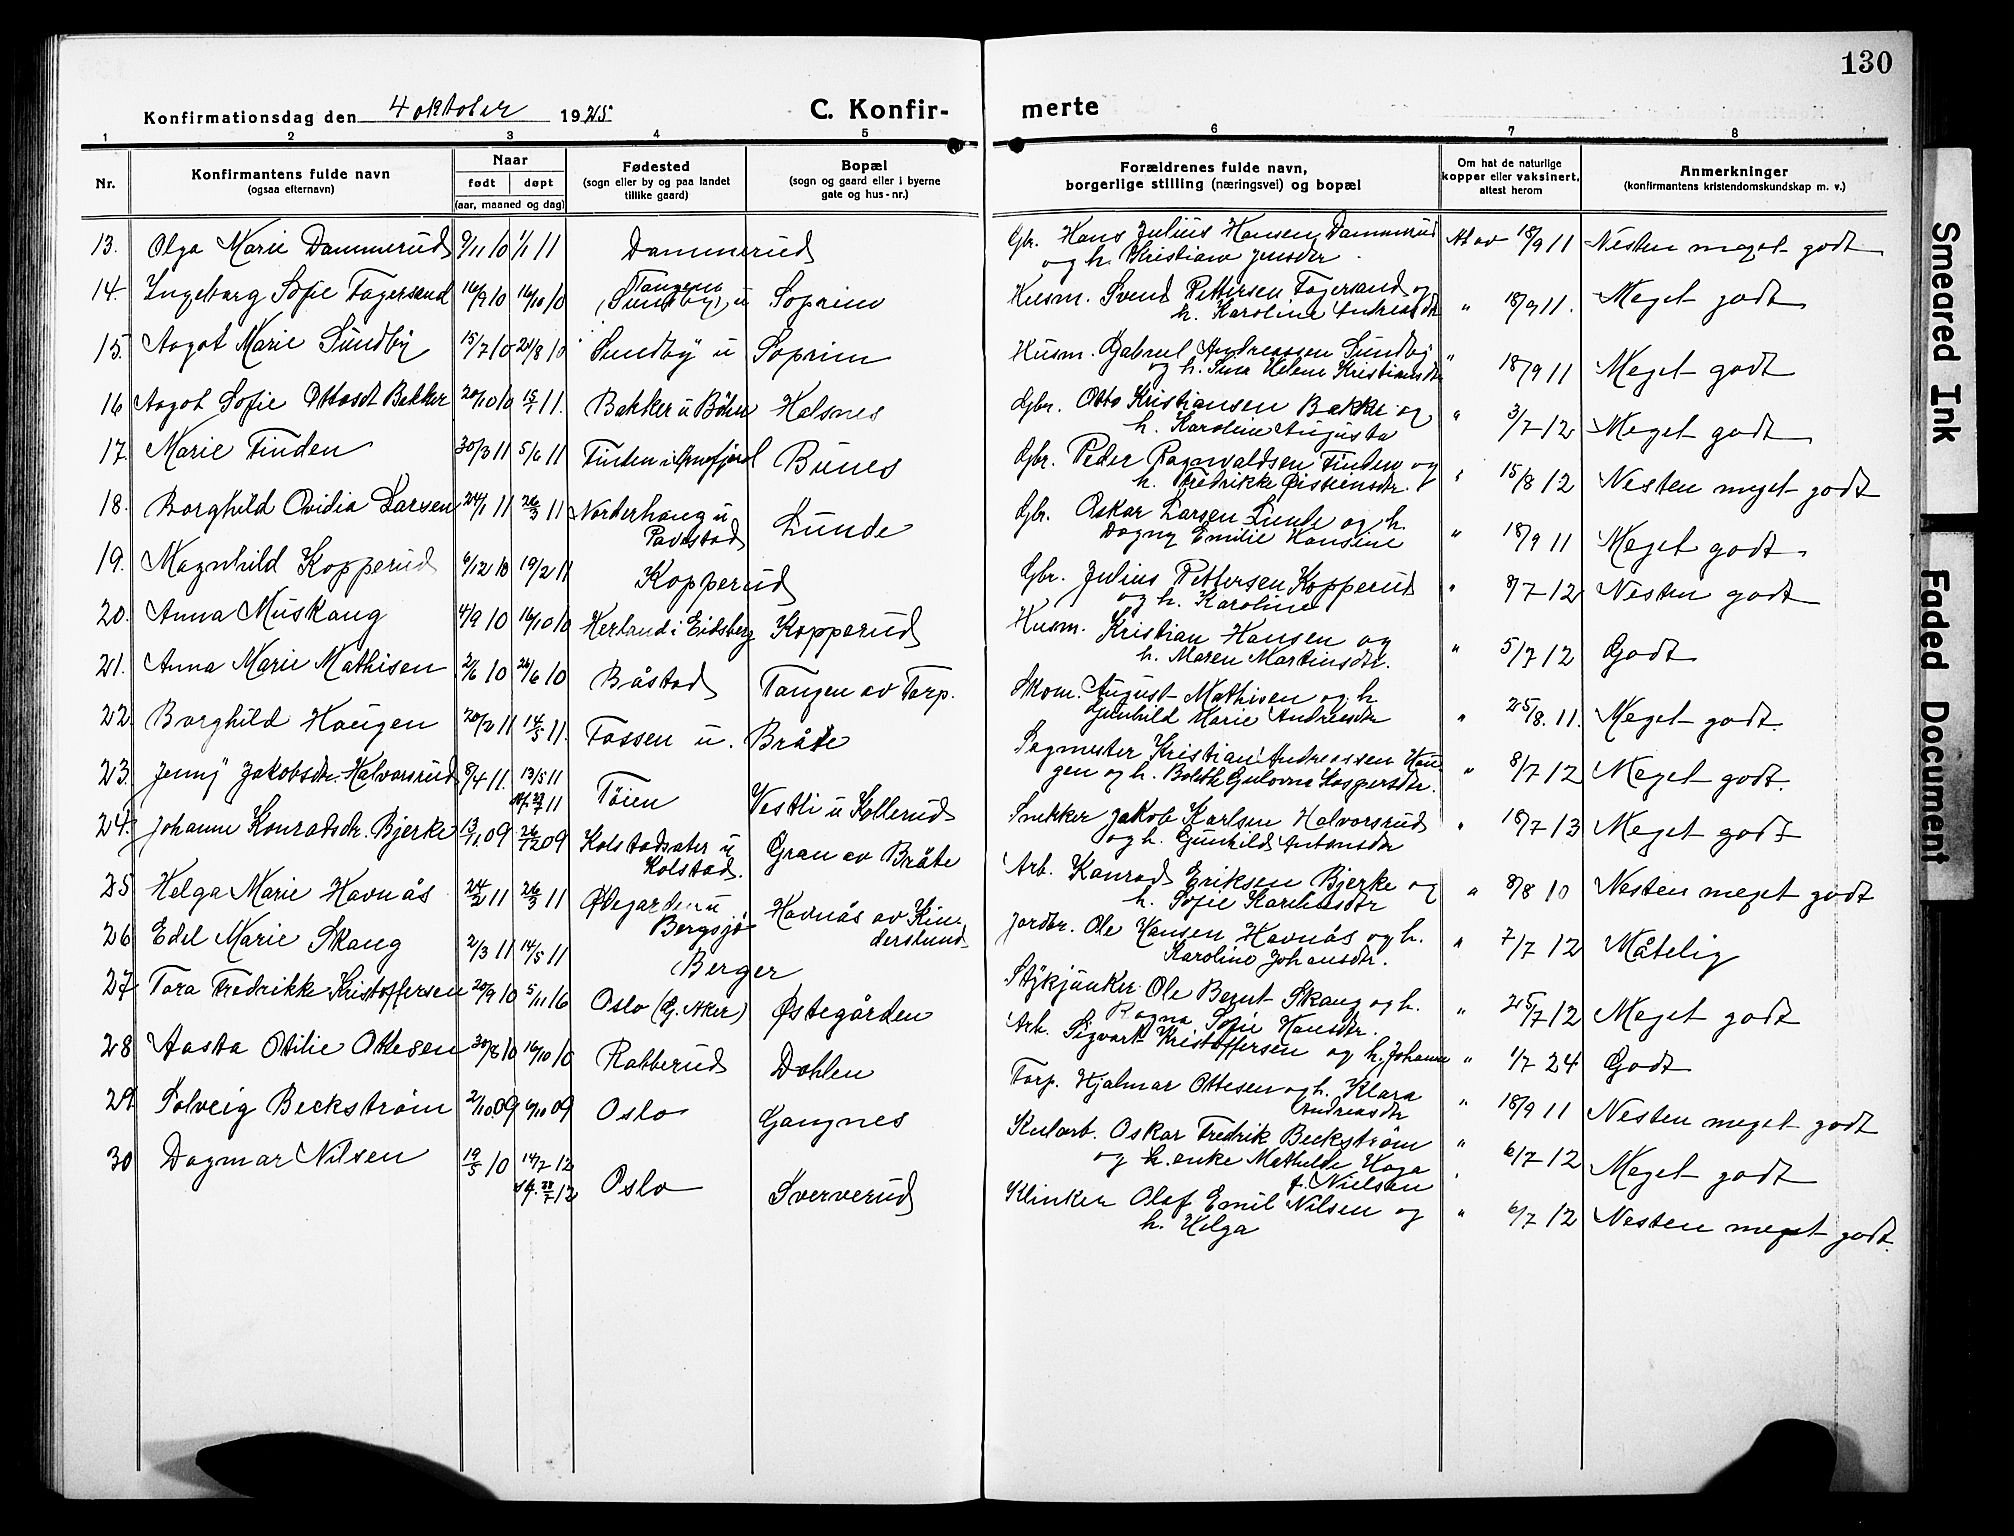 130
Konfirmationsdag den 4 oktober 1925
C. Konfir- merte
1 2 3 4 5 6 7 8
Nr.
Konfirmantens fulde navn
(ogsaa efternavn)
Naar
født døpt
(aar, maaned og dag)
Fødested
(sogn eller by og paa landet
tillike gaard)
Bopæl
(sogn og gaard eller i byerne
gate og hus-nr.)
Forældrenes fulde navn,
borgerlige stilling (næringsvei) og bopæl
Om hat de naturlige
kopper eller vaksinert,
attest herom
Anmerkninger
(konfirmantens kristendomskundskap m. v.)
13. Olga Marie Dammerud 9/11 10 1/1 11 Dammerud Gbr. Hans Julius Hansen Dammerud
og h. Kristiane Jensdr. At av 18/9 11 Nesten meget godt
14. Ingeborg Sofie Fagersand 16/9 10 16/10 10 Tangene
(Sundby) u Soprim Husm. Svend Pettersen Fagersand og
h. Karoline Andreasdr " 18/9 11. Meget godt
15. Aagot Marie Sundby 15/7 10 21/8 10 Sundby u Soprim Husm. Gabriel Andreassen Sundby
og h. Sina Helene Kristiansdr " 18/9 11 Meget godt
16 Aagot Sofie Ottosdt Bakker 20/10 10 15/1 11. Bakker u Bøhn Halsnes Gbr. Otto Kristiansen Bakke og
h. Karoline Augusta " 3/7 12 Meget godt
17. Marie Finden 30/3 11 5/6 11 Finden i Arnefjord Bunes Gbr. Peder Ragnvaldsen Finden og
h. Fredrikke Øisteinsdr. " 15/8 12 Nesten meget godt
18. Borghild Ovidia Larsen 24/1 11 26/3 11 Norderhaug u
Pavestad Lunde Gbr. Oskar Larsen Lunde og h.
Dagny Emilie Hansine " 18/9 11 Meget godt
19. Magnhild Kopperud 6/12 10 19/2 11 Kopperud Gbr. Julius Pettersen Kopperud
og h. Karoline " 8/7 12 Nesten godt
20. Anna Muskaug 4/9 10 16/10 10 Herland i Eidsberg Kopperud Husm. Kristian Hansen og
h. Maren Martinsdr. " 5/7 12 Godt
21. Anna Marie Mathisen 2/6 10 26/6 10 Båstad Tangen av Torp. Skom. August Mathisen og h
Gunhild Marie Andreasdr " 25/8. 11. Meget godt.
22. Borghild Haugen 20/2 11 14/5 11. Fossen u. Bråte Sagmester Kristian Andreassen Hau-
gen og h. Bolith Gulovna Kaspersdr. " 8/7 12 Meget godt.
23. Jenny Jakobsdr. Halvorsrud 8/4 11. 13/5 11
23/7 11 Tøien Vestli u Kollerud Snekker Jakob Karlsen Halvorsrud
og h. Gunhild Antonsdr " 18/7 13 Meget godt
24. Johanne Konradsdr. Bjerke 13/11 09 26/12 09 Kolstadsæter u
Kolstad. Gran av Bråte Arb. Konrad Eriksen Bjerke og
h. Sofie Karelusdr " 8/8 10 Nesten meget godt
25 Helga Marie Havnås 24/2 11 26/3 11 Ødegarden u
Bergsjø Havnås av Kin-
derslund Jordbr. Ole Hansen Havnås og h.
Karoline Johansdr. " 7/7 12 Måtelig
26 Edel Marie Skaug 2/3 11 14/5 11 Berger Stykjunker Ole Bernt Skaug og h.
Ragna Sofie Hansdr. " 25/7 12 Meget godt
27 Tora Fredrikke Kristoffersen 20/9 10 5/11 16 Oslo (G. Aker) Østegården Arb. Sigvart Kristoffersen og h. Johanne " 1/7 24 Godt
28 Aasta Otilie Ottesen 30/8 10 16/10 10 Rabberud Dahlen Torp. Hjalmar Ottesen og h. Klara
Andreasdr " 18/9 11 Nesten meget godt
29 Solveig Beckstrøm 2/10 09 6/10 09 Oslo Gangnes Kularb. Oskar Fredrik Beckstrøm
og h. enke Mathilde Haga
f. Nielsen " 6/7 12 Meget godt
30 Dagmar Nilsen 19/5 10 14/7 12
st. 28/7 12 Oslo Sververud Klinker Olaf Emil Nilsen og
h. Helga " 6/7 12 Nesten meget godt.
Smeared Ink
Faded Document